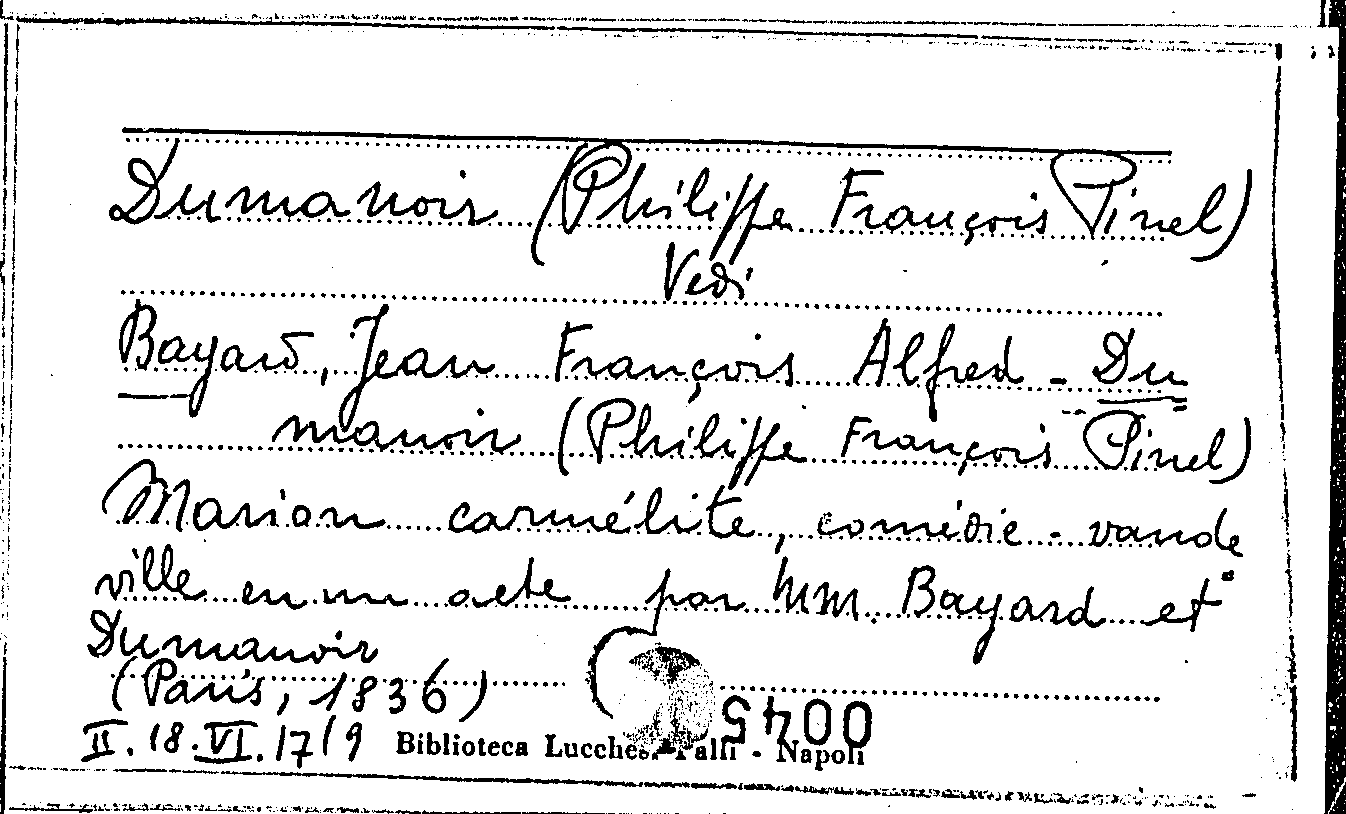 Dumanoir (Philippe François Pinel)
Vedi
Bayard, Jean François Alfred - Du
manoir (Philippe François Pinel)
Marion carmélite, comédie - vaude
ville en un acte par MM. Bayard et
Dumanoir
(Paris, 1836)
II. 18. VI. 17/9
Biblioteca Lucchesi Palli - Napoli
0045